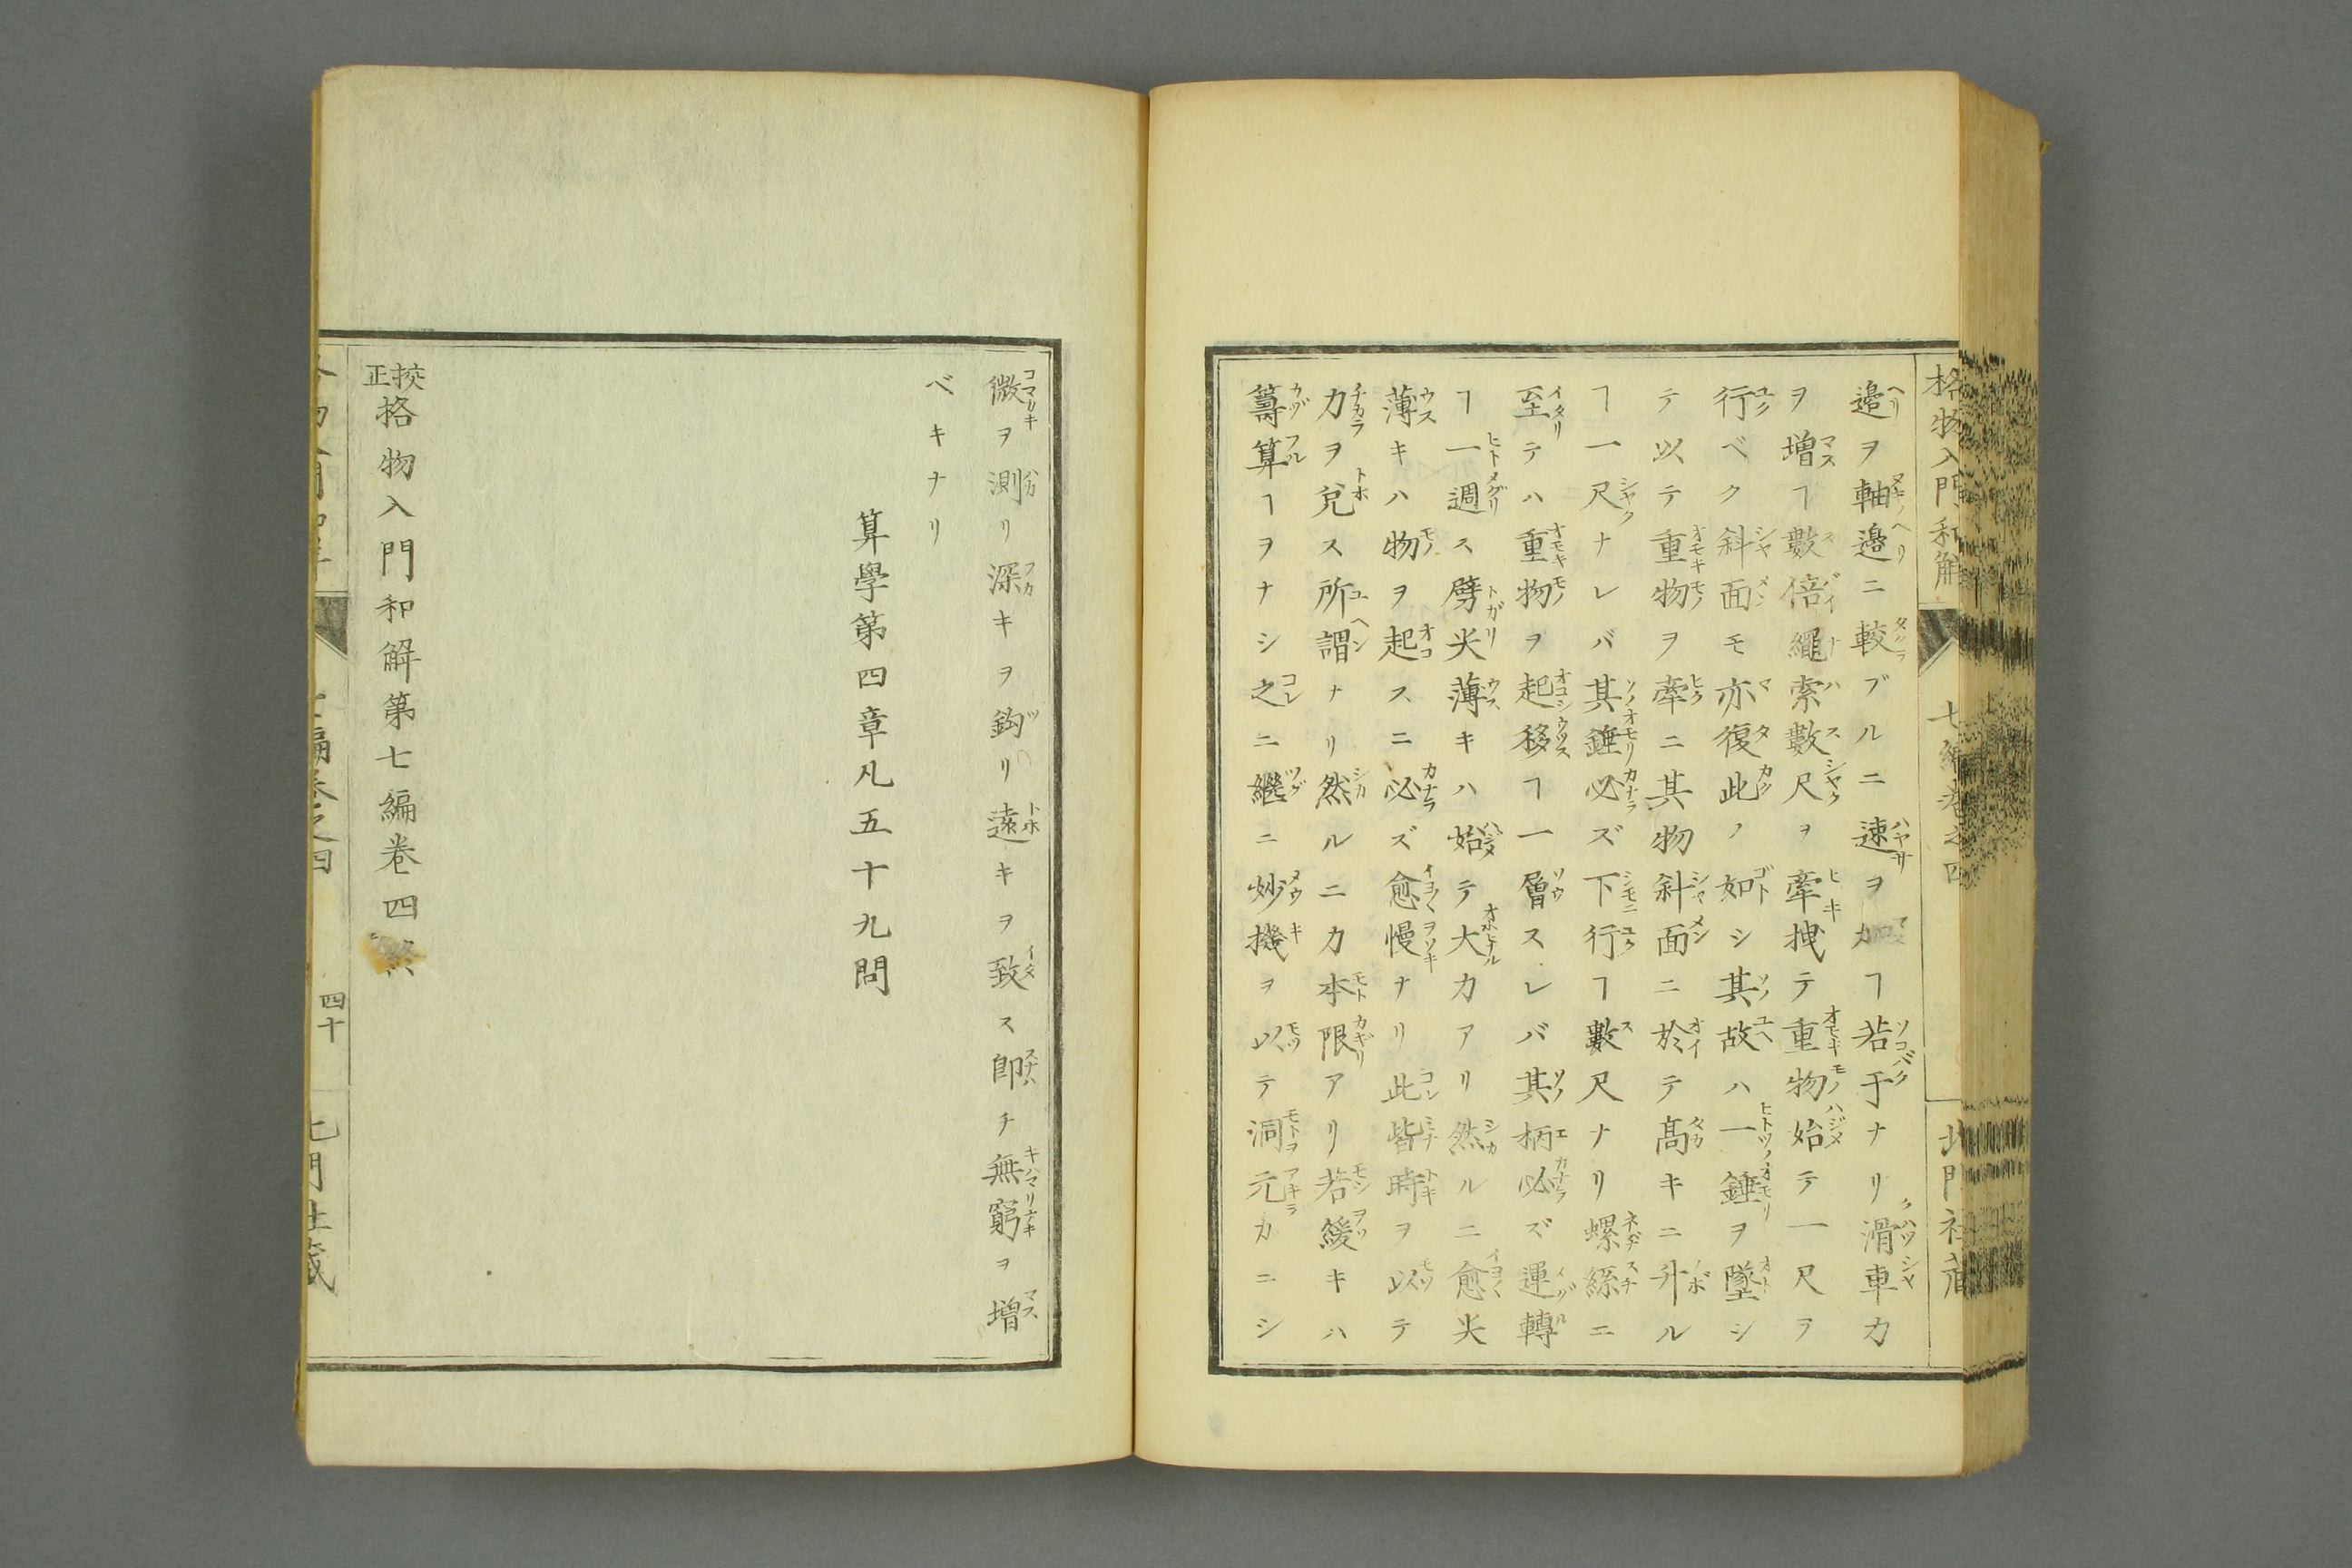 格物入門和解 七編卷之四 北門社
邉ヲ軸邉ニ較ブルニ速ヲ加ヿ若于ナリ滑車カ
ヲ増ヿ數倍繩索數尺ヲ牽拽テ重物始テ一尺ヲ
行ベク斜面モ亦復此ノ如シ其故ハ一錘ヲ墜シ
テ以テ重物ヲ牽ニ其物斜面ニ於テ髙キニ升ル
ヿ一尺ナレバ其錘必ズ下行ヿ數尺ナリ螺絲ニ
至テハ重物ヲ起移ヿ一層スレバ其柄必ズ運轉
ヿ一週ス劈尖薄キハ始テ大力アリ然ルニ愈尖
薄キハ物ヲ起スニ必ズ愈慢ナリ此皆時ヲ以テ
力ヲ兌ス所謂ナリ然ルニ力本限アリ若緩キハ
籌算ヿヲナシ之ニ繼ニ妙機ヲ以テ洞元カニシ
微ヲ測リ深キヲ鈎リ遠キヲ致ス卽チ無窮ヲ増
ベキナリ
算學第四章凡五十九問
挍正格物入門和解第七編卷四終
四十